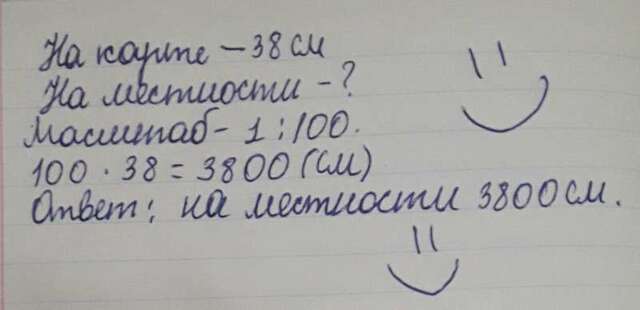 На карте – 38 см
На местности – ?
Масштаб – 1 : 100.
100 · 38 = 3800 (см)
Ответ: на местности 3800 см.